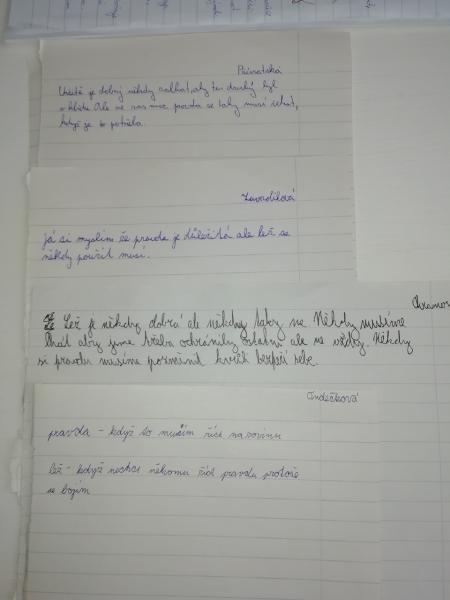 Určitě je dobrý někdy zalhat aby ten druhý byl
v klidu. Ale ne zas moc pravda se taky musí říkat,
když je to potřeba.
Zavadilová
Já si myslím že pravda je důležitá ale lež se
někdy použít musí.
Lež je někdy dobrá ale někdy taky ne. Někdy musíme
lhát aby jsme třeba ochránily ostatní ale ne vždky. Někdy
si pravdu musíme pozměnit kvůli bezpečí sebe.
Jindečková
pravda - když to musím říct narovinu
lež - když nechci někomu říct pravdu protože
se bojím